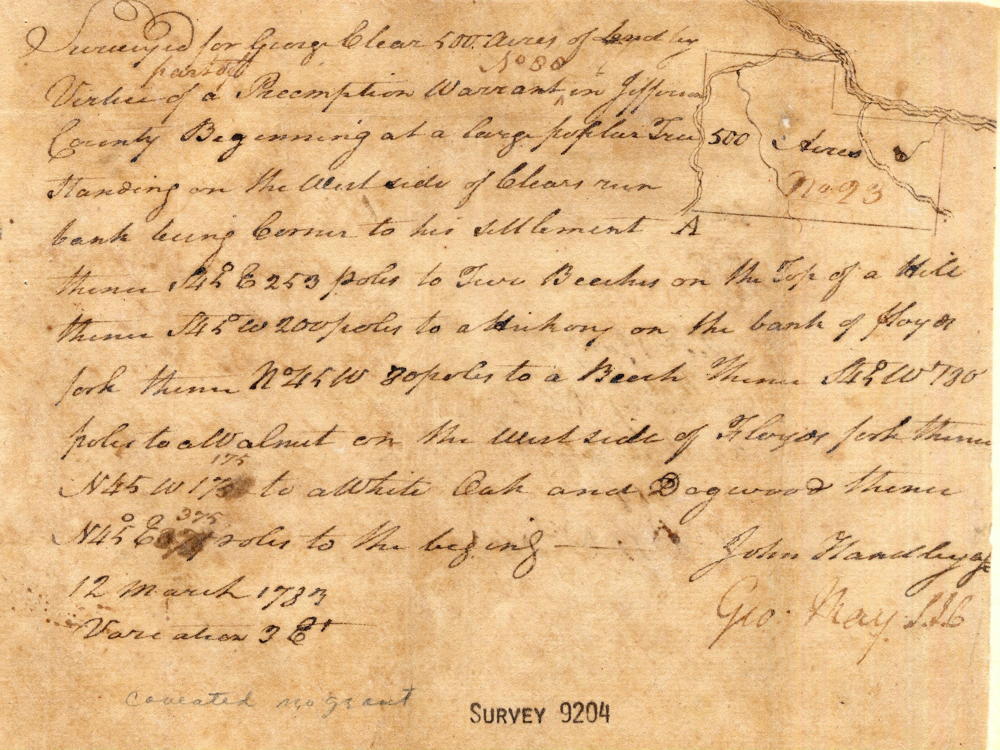 Surveyed for George Clear 500 Acres of Land by
part of No 80
Virtue of a Preemption Warrant in Jefferson
County Beginning at a large poplar Tree
Standing on the West side of Clears run
bank being Corner to his settlement A
thence S45 E 253 poles to Two Beeches on the Top of a Hill
thence S45 W 200 poles to a Hickory on the bank of floyds
fork thence No45 W 80 poles to a Beech Thence S45 W 180
poles to a Walnut on the West side of Floyds fork thence
175
N45 W to a White Oak and Dogwood thence
375
N45 E poles to the begining
John Handley
12 March 1783
Geo. May SJC
Variation 3 Et
500 Acres
No 93
caveated no grant
SURVEY 9204